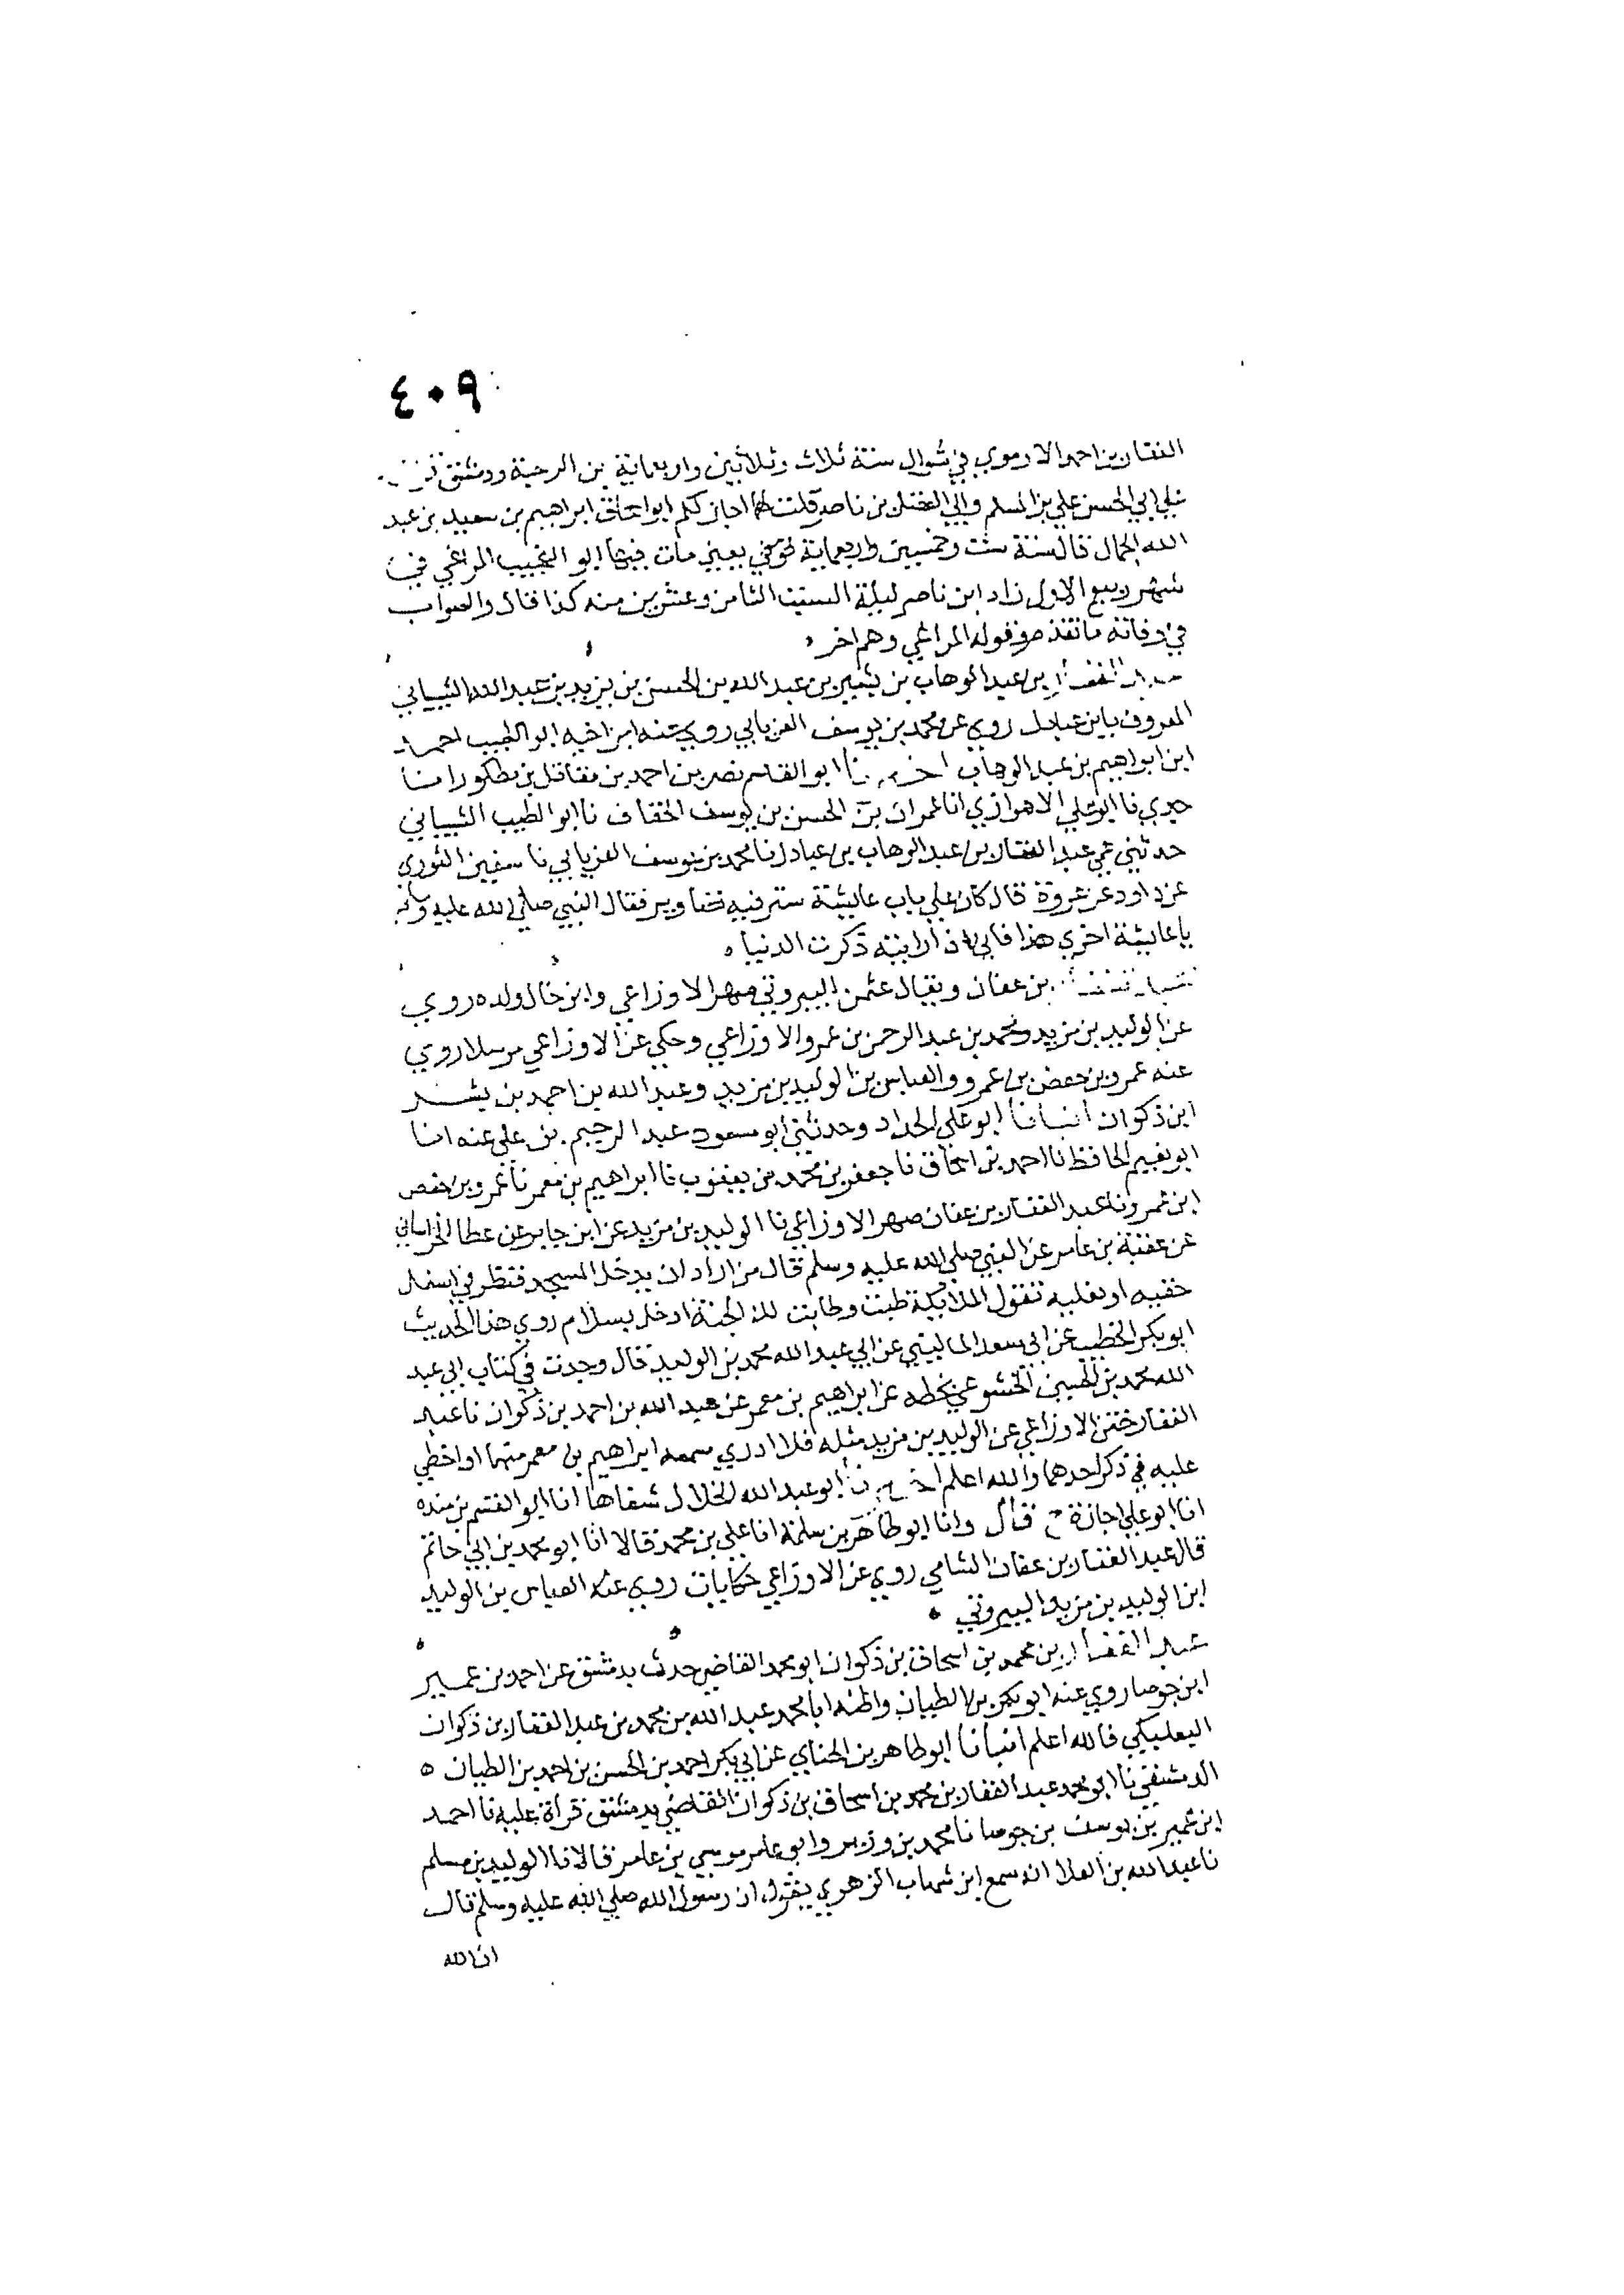 ٤٠٩
الغفار بن احمد الارموي في شوال سنة ثلاث وثلاثين واربعماية بن الرحبة ودمشق
علي ابي الحسن علي بن المسلم والي الفضل بن ناصر قلت لهما اجاز لكم ابو اسحاق ابراهيم بن سعيد بن عبد
الله الحمال قال سنة ست وخمسين واربعماية توفي يعني مات فيها ابو النجيب المراغي في
شهر ربيع الاول زاد ابن ناصر ليلة السبت الثامن وعشرين منه كذا قال والصواب
في وفاته ما تقدم وقوله المراغي وهم اخر
عبد الغفار بن عبد الوهاب بن بشير بن عبد الله بن الحسن بن يزيد بن عبد الله الشيباني
المعروف بابن عبادل روي عن محمد بن يوسف الفريابي روي عنه ابن اخيه ابو الطيب احمد
ابن ابراهيم بن عبد الوهاب اخبرنا ابو القاسم نصر بن احمد بن مقاتل بن مطكود انا
جدي نا ابو علي الاهوازي انا عمران بن الحسن بن يوسف الخفاف نا ابو الطيب الشيباني
حدثني عمي عبد الغفار بن عبد الوهاب بن عبادل نا محمد بن يوسف الفريابي نا سفين الثوري
عن داود عن عروة قال كان علي باب عايشة ستر فيه تصاوير فقال النبي صلي الله عليه وسلم
يا عايشة اخري هذا فاني اذا رايته ذكرت الدنيا ه
بن عفان ويقال عثمن البيروتي صهر الاوزاعي وابن خال ولده روي
عن الوليد بن مزيد ومحمد بن عبد الرحمن بن عمرو الاوزاعي وحكي عن الاوزاعي مرسلا روي
عنه عمرو بن حفص بن عمرو والعباس بن الوليد بن مزيد وعبد الله بن احمد بن بشر
ابن ذكوان انبانا ابو علي الحداد وحدثني ابو مسعود عبد الرحيم بن علي عنه انا
ابو نعيم الحافظ نا احمد بن اسحاق نا جعفر بن محمد بن يعقوب نا ابراهيم بن معمر نا عمرو بن حفص
ابن عمرو نا عبد الغفار بن عفان صهر الاوزاعي نا الوليد بن مزيد عن ابن جابر عن عطا الخراساني
عن عقبة بن عامر عن النبي صلي الله عليه وسلم قال من اراد ان يدخل المسجد فنظر في اسفل
خفيه او نعليه تقول الملايكة طبت وطابت لك الجنة ادخل بسلام روي هذا الحديث
ابو بكر الخطيب عن ابي سعد الماليني عن ابي عبد الله محمد بن الوليد قال وجدت في كتاب ابي عبد
الله محمد بن الحسين الخشوعي بخطه عن ابراهيم بن معمر عن عبد الله بن احمد بن ذكوان نا عبد
الغفار ختن الاوزاعي عن الوليد بن مزيد مثله فلا ادري سمعه ابراهيم بن معمر منهما او اخطي
عليه في ذكر احدهما والله اعلم اخبرنا ابو عبد الله الخلال شفاها انا ابو القسم بن منده
انا ابو علي اجازة ح قال وانا ابو طاهر بن سلمة انا علي بن محمد قالا انا ابو محمد بن ابي حاتم
قال عبد الغفار بن عفان الشامي روي عن الاوزاعي حكايات روي عنه العباس بن الوليد
ابن الوليد بن مزيد البيروتي
عبد الغفار بن محمد بن اسحاق بن ذكوان ابو محمد القاضي حدث بدمشق عن احمد بن عمير
ابن جوصا روي عنه ابو بكر بن الطيان واظنه ابا محمد عبد الله بن محمد بن عبد الغفار بن ذكوان
البعلبكي فالله اعلم انبانا ابو طاهر بن الحناي عن ابي بكر احمد بن الحسن بن احمد بن الطيان ه
الدمشقي نا ابو محمد عبد الغفار بن محمد بن اسحاق بن ذكوان القاضي بدمشق قراة عليه نا احمد
ابن عمير بن يوسف بن جوصا نا محمد بن وزير وابو عامر موسي بن عامر قالا نا الوليد بن مسلم
نا عبد الله بن العلا انه سمع ابن شهاب الزهري يقول ان رسول الله صلي الله عليه وسلم قال
ان الله